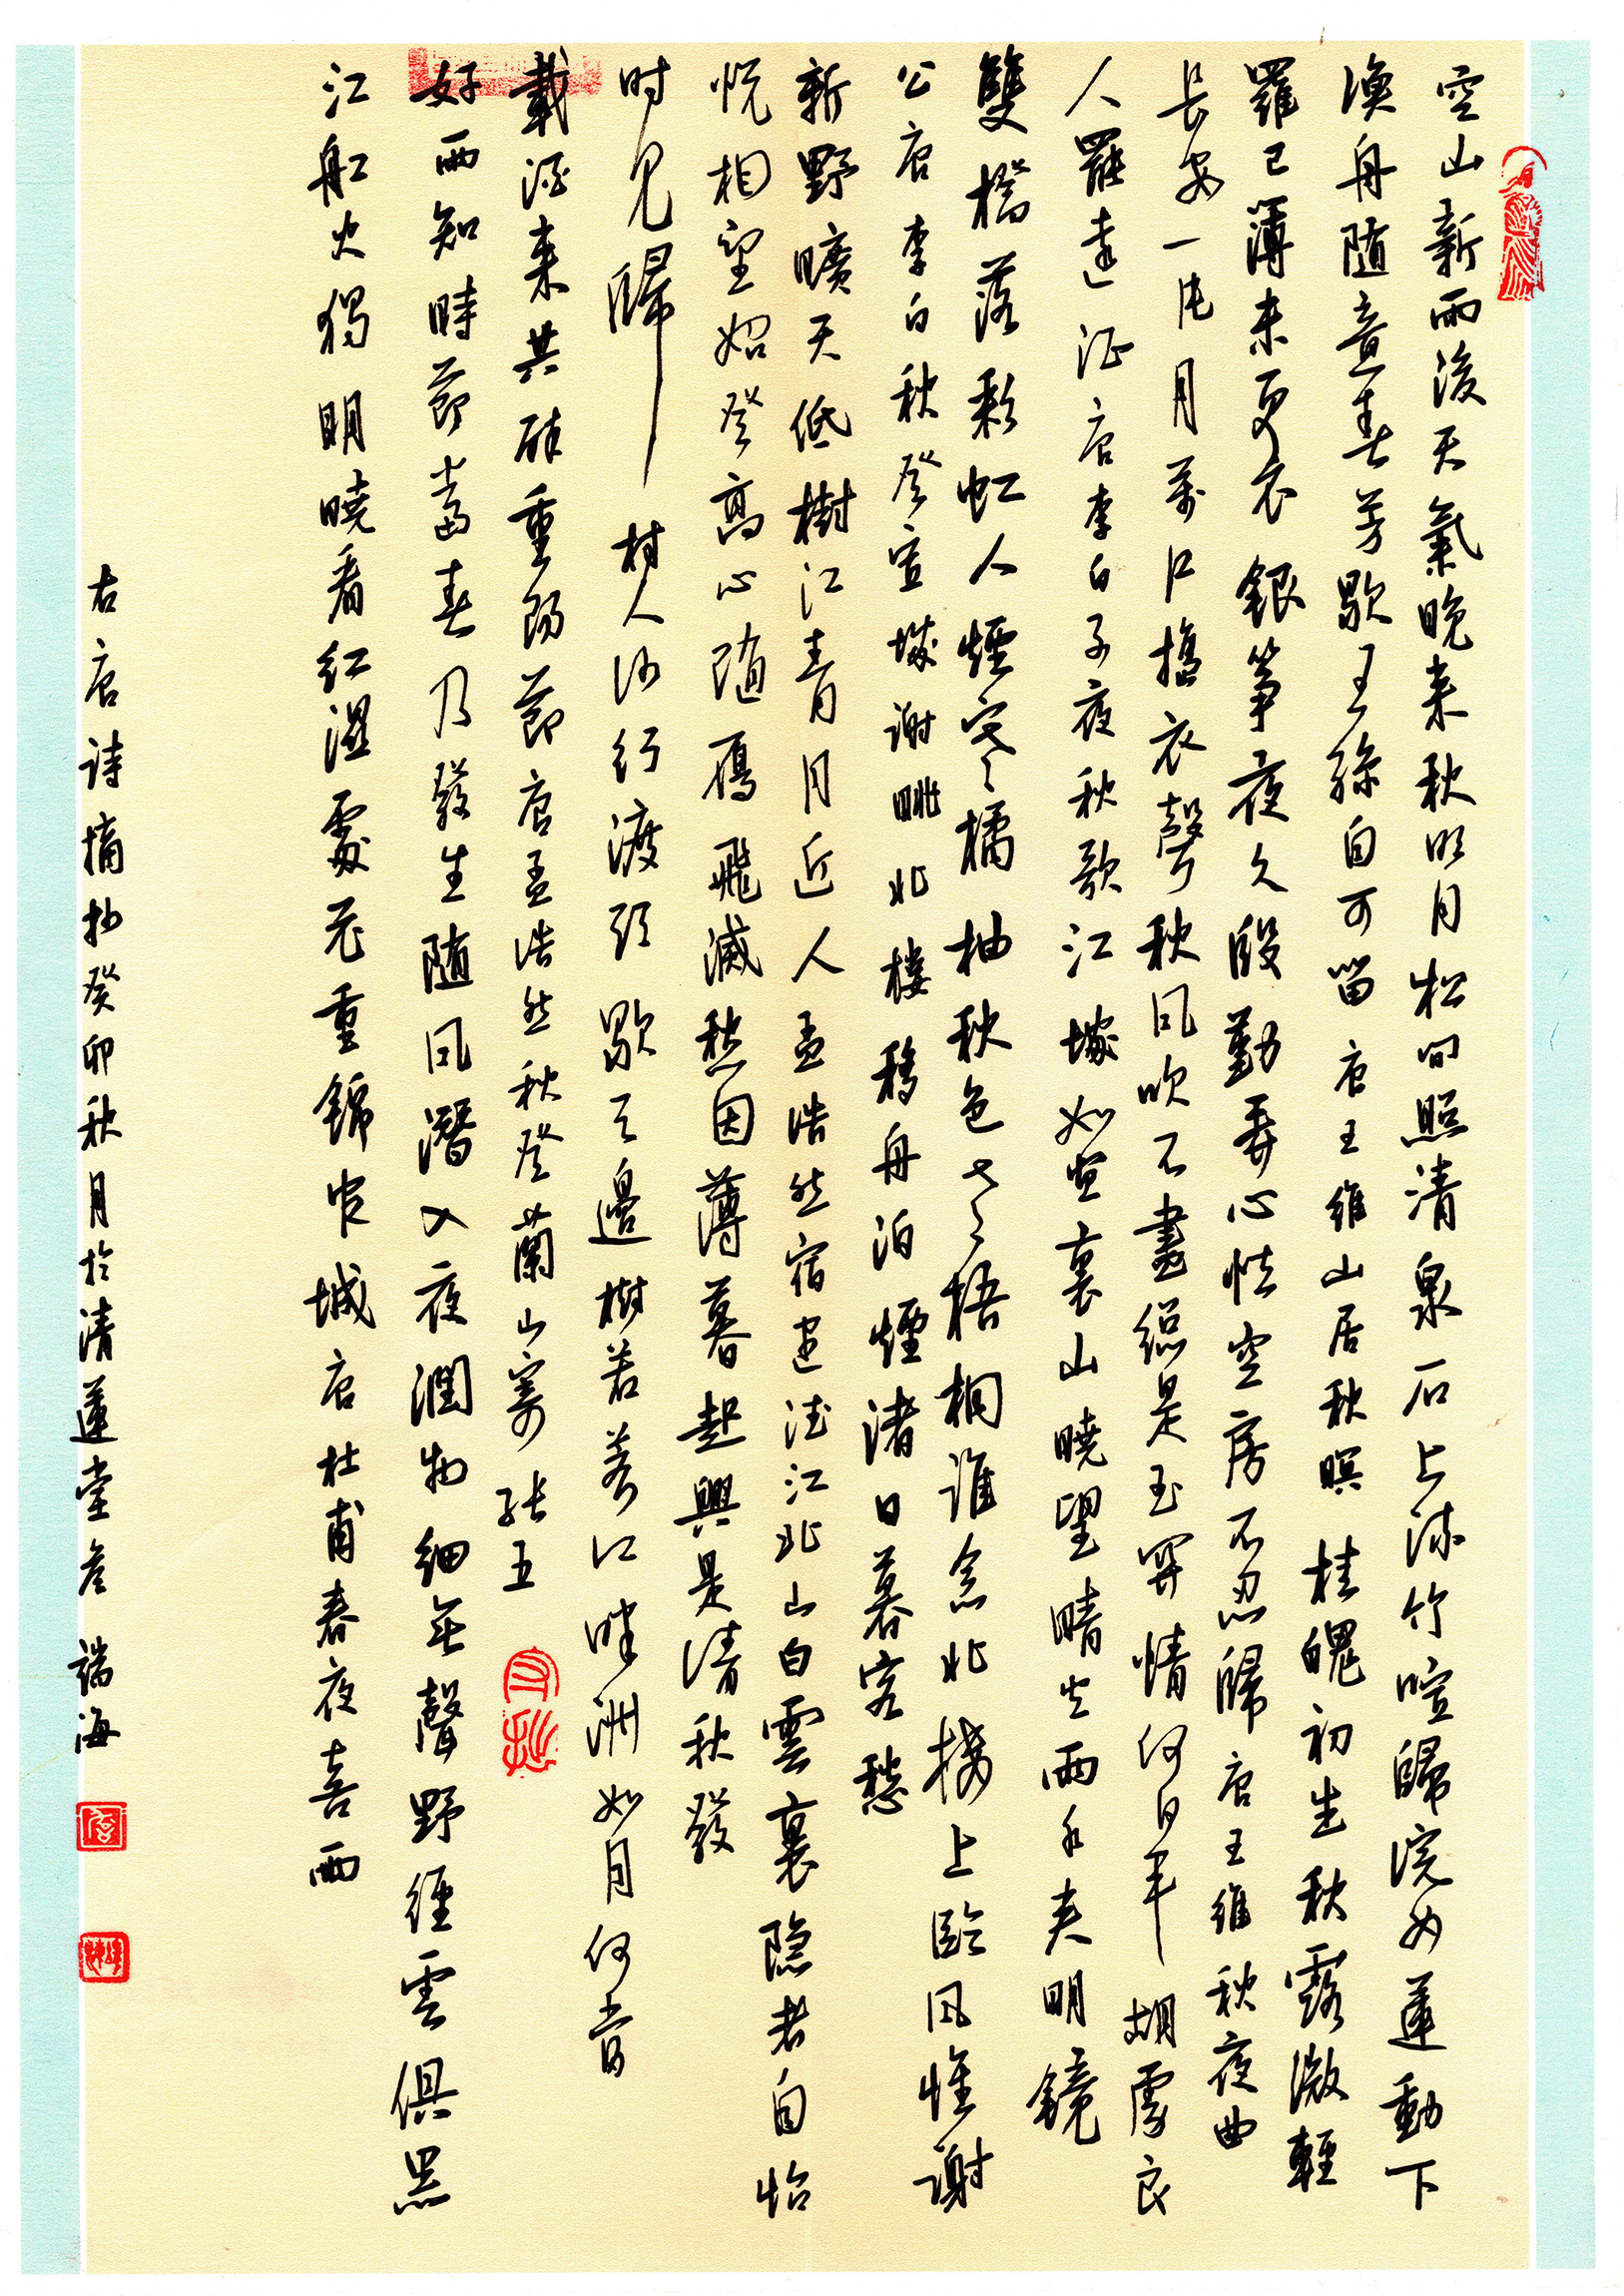 空山新雨後天氣晚来秋明月松间照清泉石上流竹喧歸浣女蓮動下
漁舟随意春芳歇王孫自可留唐王維山居秋暝桂魄初生秋露微輕
羅已薄未更衣銀筝夜久殷勤弄心怯空房不忍歸唐王維秋夜曲
長安一片月萬户搗衣聲秋风吹不盡總是玉関情何日平胡虜良
人罷遠征唐李白子夜秋歌江城如畫裏山曉望晴空兩水夹明鏡
雙橋落彩虹人煙寒橘柚秋色老梧桐誰念北楼上臨风懷謝
公唐李白秋登宣城謝眺北樓移舟泊煙渚日暮客愁
新野曠天低樹江青月近人孟浩然宿建德江北山白雲裏隐者自怡
悦相望始登高心随雁飛滅愁因薄暮起興是清秋發
时见歸村人沙行渡头歇天邊樹若荠江畔洲如月何當
載酒来共醉重陽節唐孟浩然秋登蘭山寄张五
好雨知時節當春乃發生随风潛入夜潤物细無聲野径雲俱黑
江船火獨明曉看红濕處花重錦官城唐杜甫春夜喜雨
右唐诗摘抄癸卯秋月於清蓮堂詹瑞海